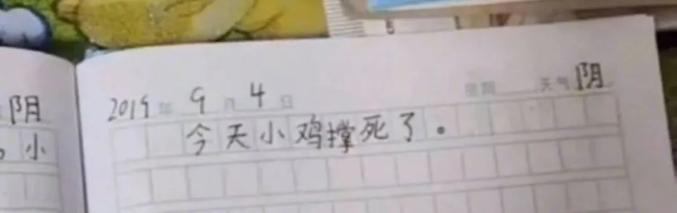 阴
2019年 9月 4日 星期 天气 阴
，小
今天小鸡撑死了。